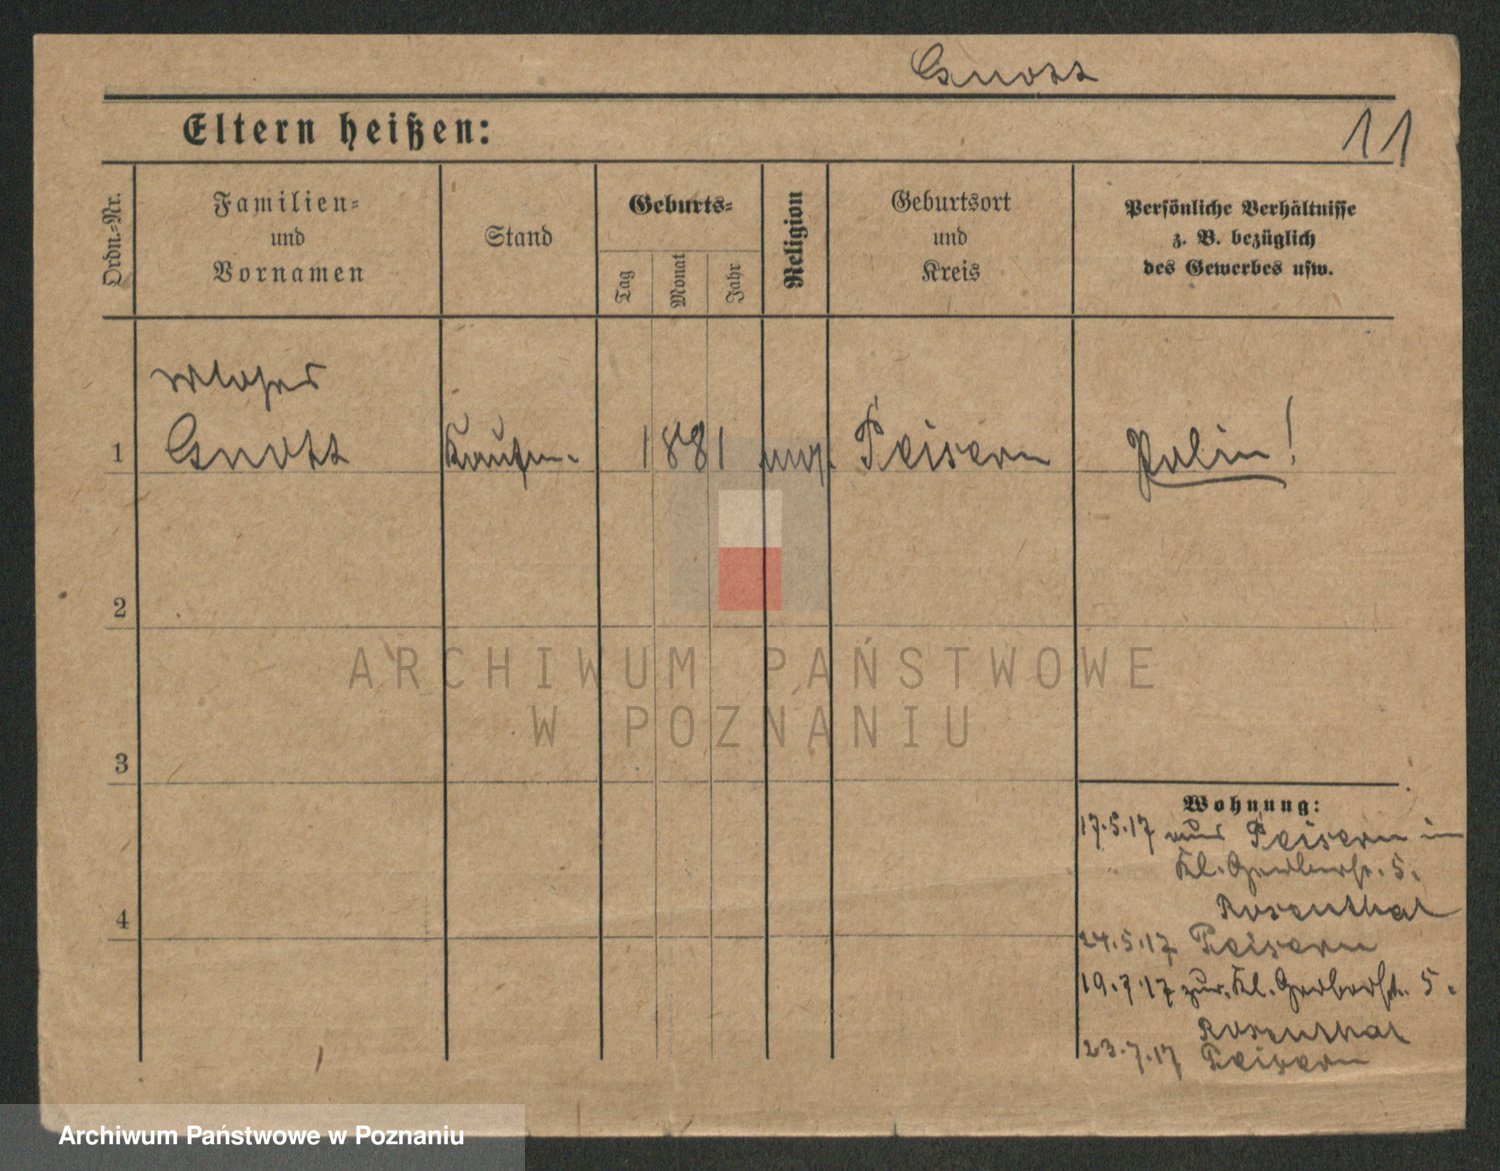 Gnott
Eltern heißen:
11
Ordn.-Nr.
Familien-
und
Vornamen
Stand
Geburts-
Tag
Monat
Jahr
Religion
Geburtsort
und
Kreis
Persönliche Verhältnisse
z. B. bezüglich
des Gewerbes usw.
Moses
1 Gnott Kaufm. 1881 mos. Peisern Polin!
2
3
4
Wohnung:
17.5.17 aus Peisern in
Kl. Gerberstr. 5.
Rosenthal
24.5.17 Peisern
19.7.17 zur. Kl. Gerberstr. 5.
Rosenthal
23.7.17 Peisern
ARCHIWUM PAŃSTWOWE
W POZNANIU
Archiwum Państwowe w Poznaniu